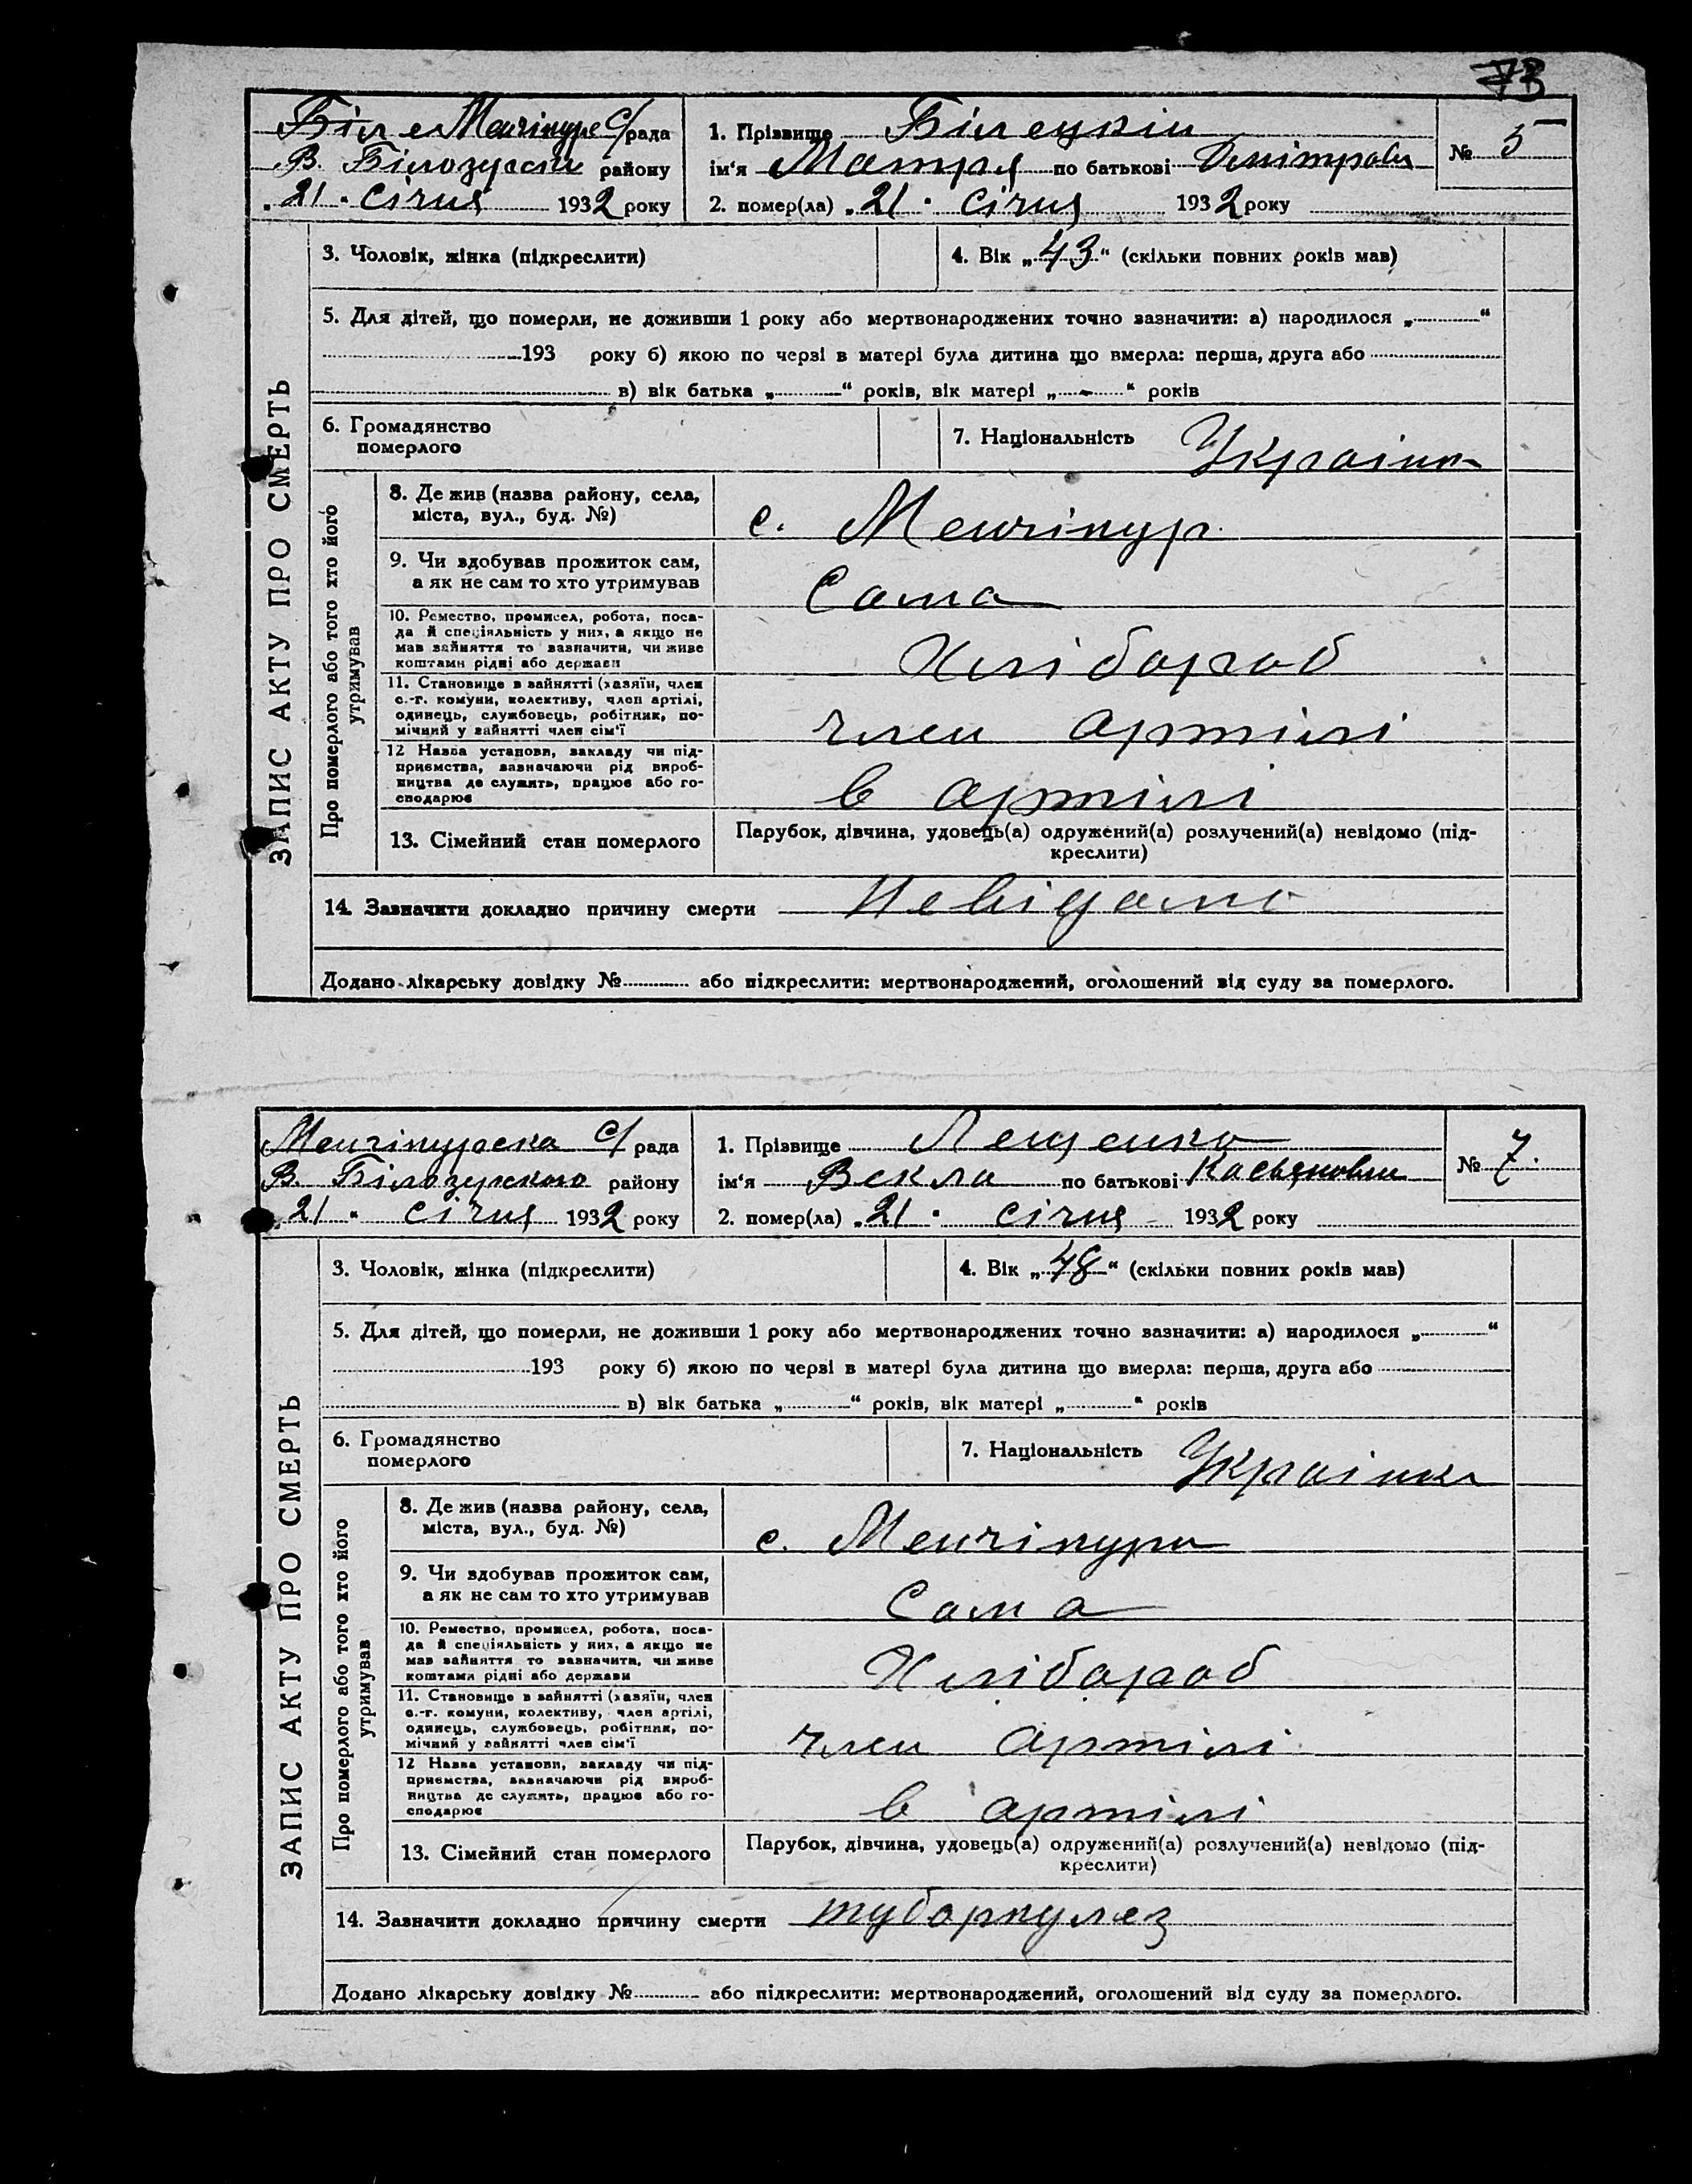 73
Менчікурс С/рада
В. Білозірськ району
„21“ Січня 1932 року
1. Прізвище Білецкій
ім'я Мотря по батькові Дмітров
2. помер(ла) „21“ Січня 1932 року
№ 5
ЗАПИС АКТУ ПРО СМЕРТЬ
3. Чоловік, жінка (підкреслити)
4. Вік „43“ (скільки повних років мав)
5. Для дітей, що померли, не доживши 1 року або мертвонароджених точно зазначити: а) народилося „ “
193 року б) якою по черзі в матері була дитина що вмерла: перша, друга або
в) вік батька „ “ років, вік матері „ “ років
6. Громадянство
померлого
7. Національність Украінка
Про померлого або того хто його
утримував
8. Де жив (назва району, села,
міста, вул., буд. №)
с. Менчікур
9. Чи здобував прожиток сам,
а як не сам то хто утримував
Сама
10. Ремество, промисел, робота, поса-
да й спеціяльність у них, а якщо не
мав зайняття то зазначити, чи живе
коштами рідні або держави
Хлібороб
11. Становище в зайнятті (хазяїн, член
с.-г. комуни, колективу, член артілі,
одинець, службовець, робітник, по-
мічний у зайнятті член сім'ї
член артілі
12 Назва установи, закладу чи під-
приємства, зазначаючи рід вироб-
ництва де служить, працює або го-
сподарює
в артілі
13. Сімейний стан померлого
Парубок, дівчина, удовець(а) одружений(а) розлучений(а) невідомо (під-
креслити)
14. Зазначити докладно причину смерти Невідомо
Додано лікарську довідку № або підкреслити: мертвонароджений, оголошений від суду за померлого.
Менчікурска С/рада
В. Білозірского району
„21“ січня 1932 року
1. Прізвище Лещенко
ім'я Векла по батькові Касьяновни
2. помер(ла) „21“ січня 1932 року
№ 7.
ЗАПИС АКТУ ПРО СМЕРТЬ
3. Чоловік, жінка (підкреслити)
4. Вік „48“ (скільки повних років мав)
5. Для дітей, що померли, не доживши 1 року або мертвонароджених точно зазначити: а) народилося „ “
193 року б) якою по черзі в матері була дитина що вмерла: перша, друга або
в) вік батька „ “ років, вік матері „ “ років
6. Громадянство
померлого
7. Національність Украінка
Про померлого або того хто його
утримував
8. Де жив (назва району, села,
міста, вул., буд. №)
с. Менчікури
9. Чи здобував прожиток сам,
а як не сам то хто утримував
Сама
10. Ремество, промисел, робота, поса-
да й спеціяльність у них, а якщо не
мав зайняття то зазначити, чи живе
коштами рідні або держави
Хлібороб
11. Становище в зайнятті (хазяїн, член
с.-г. комуни, колективу, член артілі,
одинець, службовець, робітник, по-
мічний у зайнятті член сім'ї
член артілі
12 Назва установи, закладу чи під-
приємства, зазначаючи рід вироб-
ництва де служить, працює або го-
сподарює
в артілі
13. Сімейний стан померлого
Парубок, дівчина, удовець(а) одружений(а) розлучений(а) невідомо (під-
креслити)
14. Зазначити докладно причину смерти туборкулез
Додано лікарську довідку № або підкреслити: мертвонароджений, оголошений від суду за померлого.